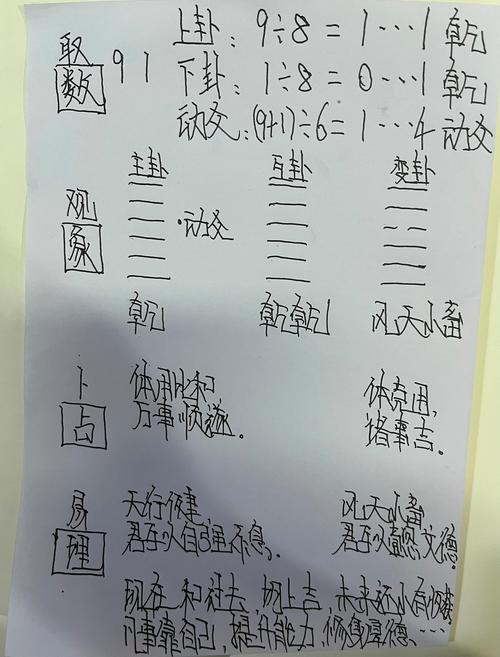 取数 9 1
上卦:9÷8=1…1 乾
下卦:1÷8=0…1 乾
动爻:(9+1)÷6=1…4 动爻
观象
主卦 互卦 变卦
·动爻
乾 乾乾 风天小畜
卜占
体用比和, 体克用,
万事顺遂。 诸事吉。
易理
天行健, 风天小畜
君子以自强不息。 君子以懿文德。
现在和过去,都上吉,未来还小有收获
凡事靠自己,提升能力,修身厚德……